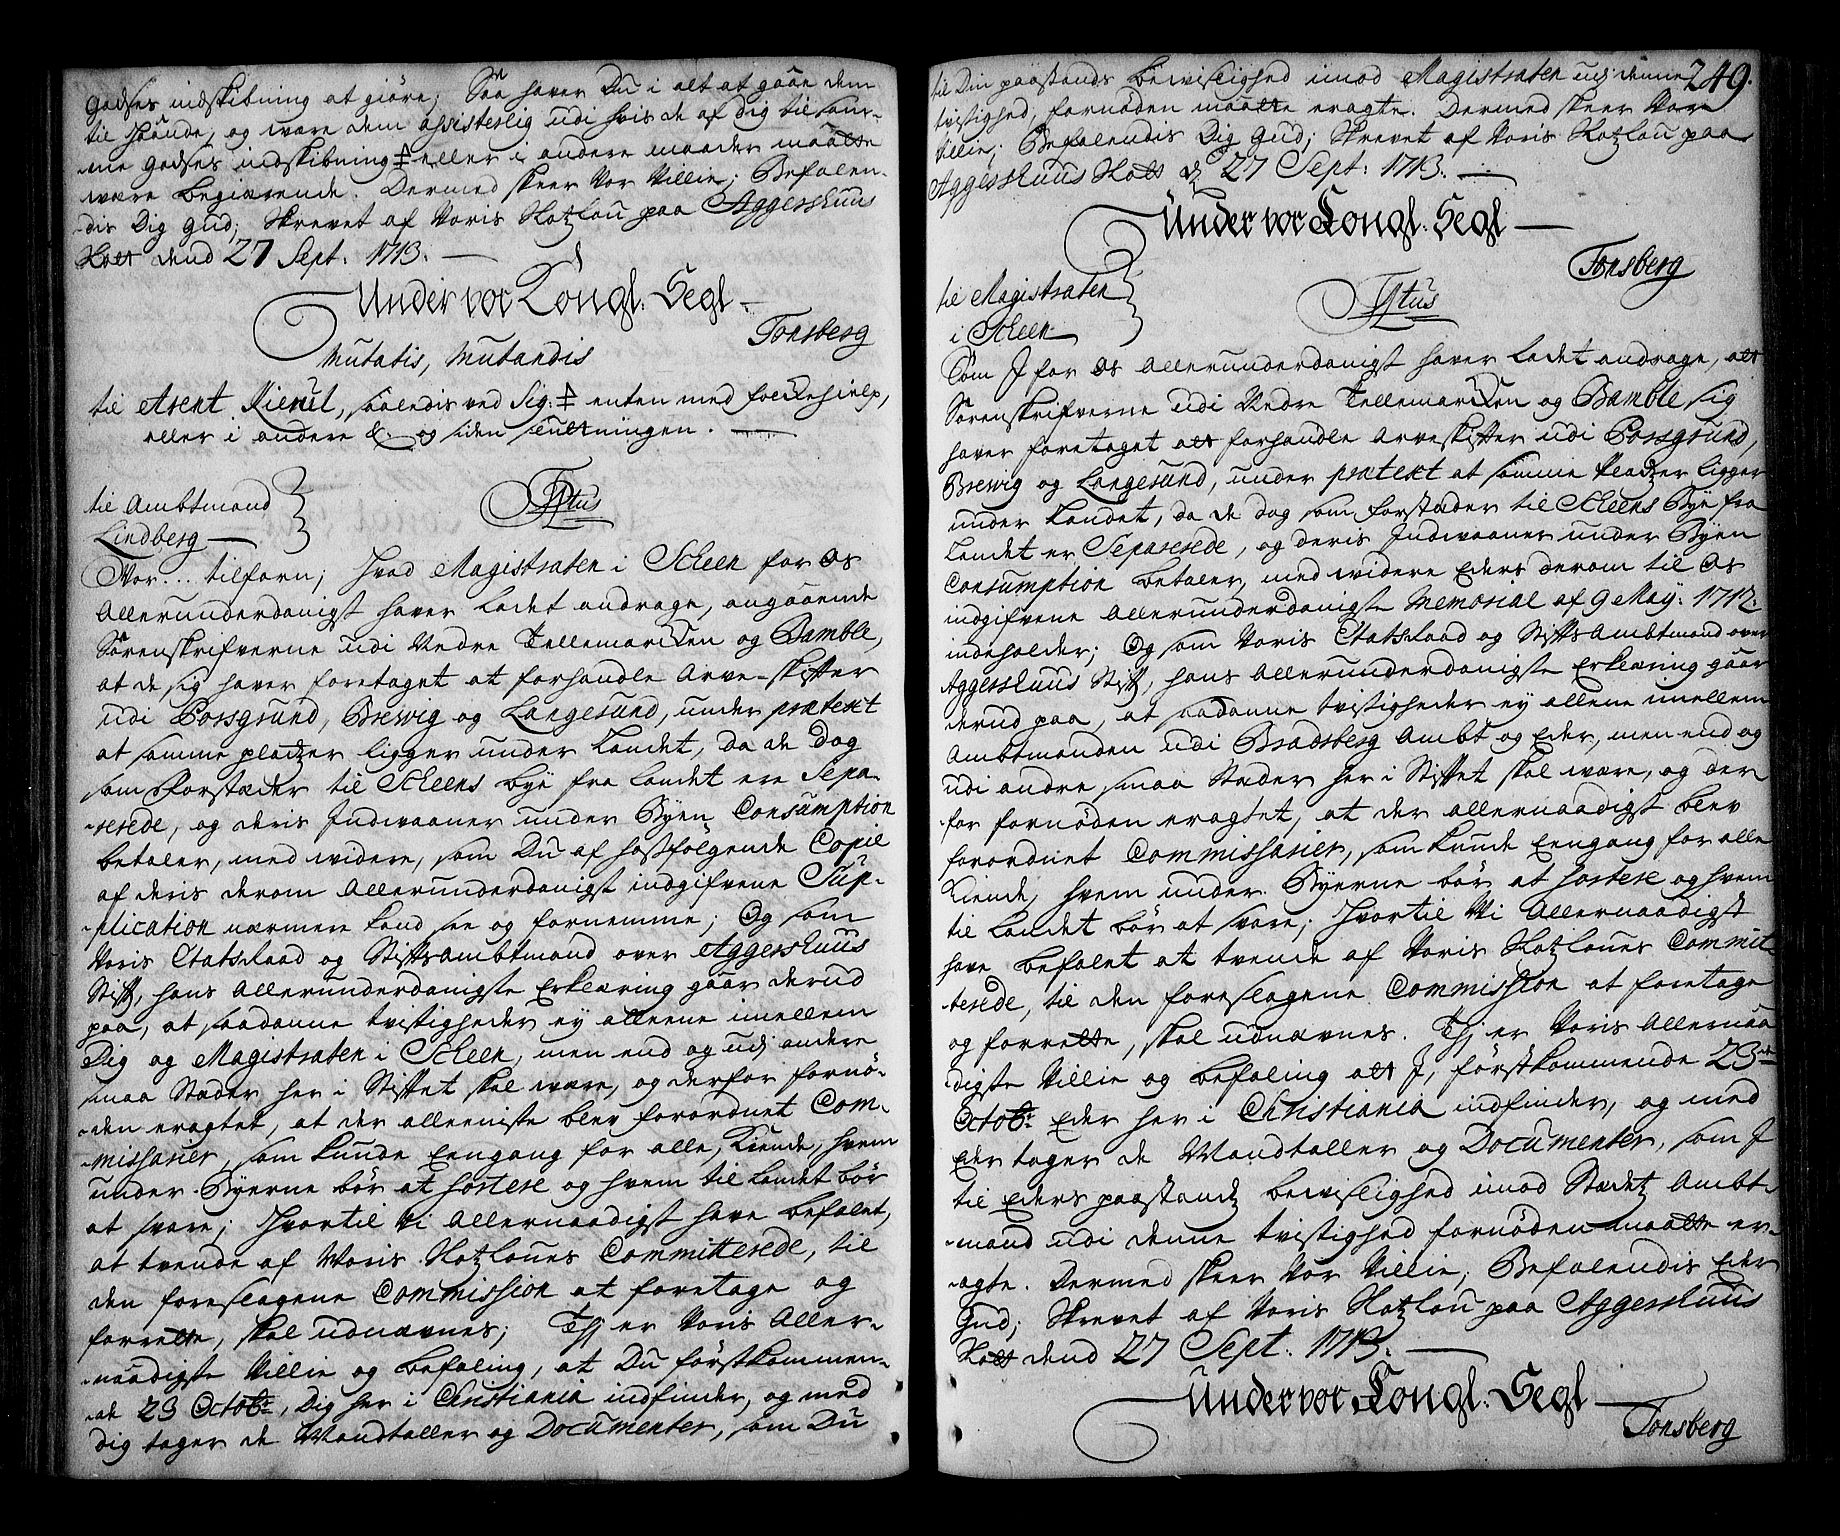 Godses indskibning at giøre; Saa haver Du i alt at gaae dem
til Haande, og være dem assisterlig udi hvis de af Dig til sam-
me Godses indskibning eller i andere maader maatte
være begierende. Dermed skeer Vor Villie; Befalen-
dis Dig Gud; Skrevet af Voris Slotzlou paa Aggershuus
Slott dend 27 Sept: 1713.
Under vor Kongl. Segl
Tonsberg
mutatis, mutandis
til Arent, saaledis ved Sig: enten med folckehielp,
eller i andere &. og siden slutningen.
til Ambtmand
Lindberg
Titus
Vor... tilforn; Hvad Magistraten i Scheen for Os
Allerunderdanigst haver ladet andrage, angaaende
Sorenskrifverne udi Nedre Tellemarcken og Bamble,
at de sig haver foretaget at forhandle Arve-skifter
udi Porsgrund, Brewig og Langesund, under prætext
at samme pladzer ligger under Landet, da de dog
som Forstæder til Scheens bye fra Landet ere Sepa-
rerede, og deris Indvaaner under Byen Consumption
betaler, med videre, som Du af hosfølgende Copie
af deris derom Allerunderdanigst indgifvene Sup-
plication nærmere kand see og fornemme; Og som
Voris Etatsraad og Stiftsambtmand over Aggershuus
Stift, hans Allerunderdanigste Erklæring gaar derud
paa, at saadanne tvistigheder ey alleene imellem
Dig og Magistraten i Scheen, men end og udj andere
smaa Stæder her i Stiftet skal være, og derfor fornø-
den eragtet, at der allerniste blev forordnet Com-
missarier, som kunde Eengang for alle, Kiende, hvem
under Byerne bør at sortere og hvem til Landet bør
at svare; Hvortil Vi Allernaadigst have befalet,
at tvende af Voris Slotzlouves Committerede, til
den foreslagene Commission at foretage og
forrette, skal udnævnes; Thj er Voris Aller-
naadigste Villie og befaling, at Du førstkommen-
de 23 Octobr, Dig her i Christiania indfinder, og med
Dig tager de Mandtaller og Documenter, som Du
249.
til Din paastands bevislighed imod Magistraten udj denne
tvistighed, fornøden maatte eragte. Dermed skeer Vor
Villie; Befalendis Dig Gud; Skrevet af Voris Slotzlou paa
Aggershuus Slott d 27 Sept: 1713.
Under vor Kongl. Segl
Tonsberg
til Magistraten
i Scheen
Titus
Som J for Os Allerunderdanigst haver ladet andrage, att
Sorenskrifverne udi Nedre Tellemarcken og Bamble sig
haver foretaget att forhandle Arveskifter udi Porsgrund,
Brewig og Langesund, under prætext at samme pladzer ligger
under Landet, da de dog som forstæder til Scheens Bye fra
Landet er Separerede, og deris Indvaaner under Byen
Consumption betaler, med videre Eders derom til Os
indgifvene Allerunderdanigste Memorial af 9 May: 1712.
indeholder; Og som Voris Etatsraad og StiftsAmbtmand over
Aggershuus Stift, hans Allerunderdanigste Erklæring gaar
derud paa, at saadanne tvistigheder ey allene imellem
Ambtmanden udi Bradsberg Ambt og Eder, men end og
udi andre smaa Stæder her i Stiftet skal være, og der
for fornøden eragtet, at der allernaadigst blev
forordnet Commissarier, som kunde Eengang for alle
Kiende, hvem under Byerne bør at sortere og hvem
til Landet bør at svare; Hvortil Vi Allernaadigst
have befalet at tvende af Voris Slotzlouves Commit
terede, til den foreslagene Commission at foretage
og forrette, skal udnævnes. Thj er Voris Allernaa
digste Villie og befaling att J, førstkommende 23de
Octobr: Eder her i Christiania indfinder, og med
Eder tager de Mandtaller og Documenter, som J
til Eders paastandz bevislighed imod Stædetz Ambt-
mand udi denne tvistighed fornøden maatte er-
agte. Dermed skeer Vor Villie; Befalendis Eder
Gud; Skrevet af Voris Slotzlou paa Aggershuus
Slott dend 27 Sept: 1713.
Under vor Kongl. Segl
Tonsberg